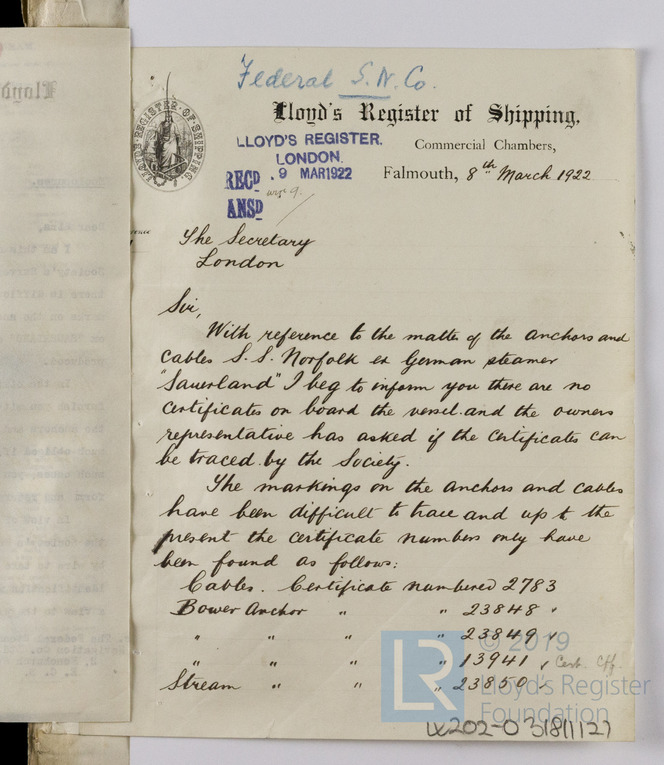 Federal S.N.Co.
Lloyd's Register of Shipping,
LLOYD'S REGISTER OF SHIPPING.
LLOYD'S REGISTER.
LONDON.
RECD. 9 MAR1922
ANSD
Commercial Chambers,
Falmouth, 8th March 1922
The Secretary
London
Sir,
With reference to the matter of the anchors and
Cables S.S. Norfolk ex German steamer
"Sauerland" I beg to inform you there are no
Certificates on board the vessel and the owners
representative has asked if the certificates can
be traced by the Society.
The markings on the anchors and cables
have been difficult to trace and up to the
present the certificate numbers only have
been found as follows:
Cables. Certificate numbered 2783
Bower Anchor " " 23848
" " " " 23849
" " " " 13941
Stream " " " 23850
LR © 2019
Lloyd's Register
Foundation